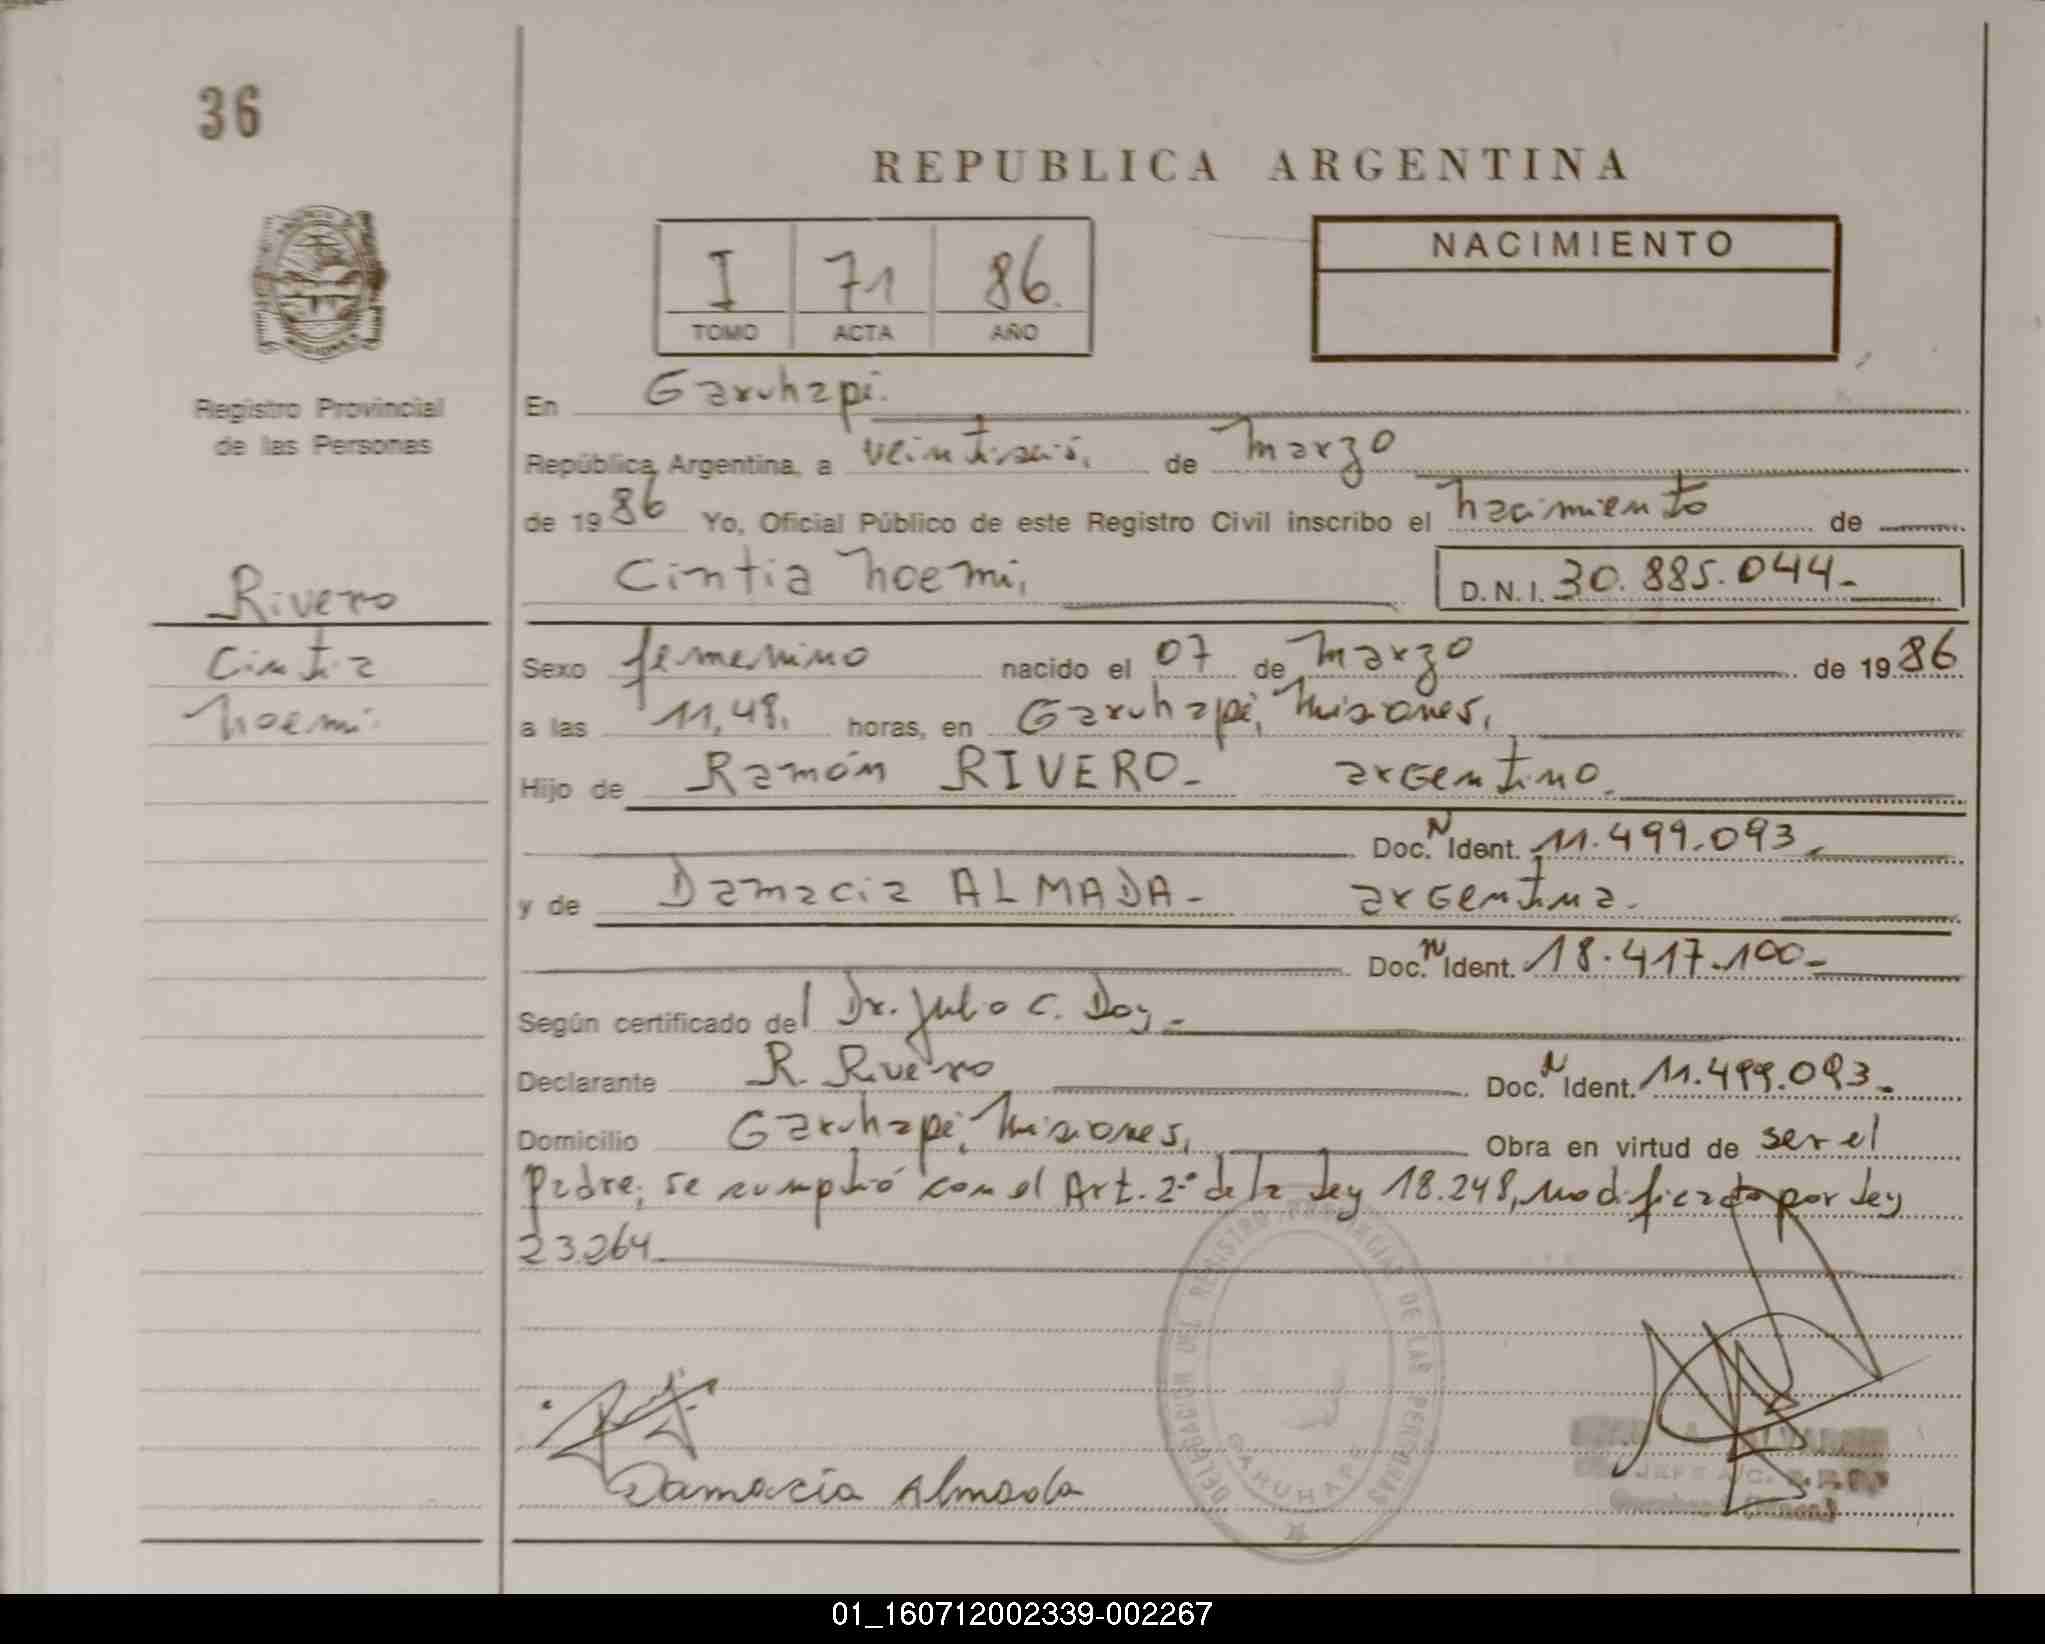 36
REPUBLICA ARGENTINA
NACIMIENTO
I 71 86
TOMO ACTA AÑO
Registro Provincial
de las Personas
Rivero
Cintia
Noemi
En Garuhapé.
República Argentina, a veintiseis de Marzo
de 1986 Yo, Oficial Público de este Registro Civil inscribo el nacimiento de
Cintia Noemi, D.N.I. 30.885.044-
Sexo femenino nacido el 07 de Marzo de 1986
a las 11,48, horas, en Garuhapé, Misiones,
Hijo de Ramón RIVERO- argentino.
Doc. N Ident. 11.499.093-
y de Damacia ALMADA- argentina.
Doc. N Ident. 18.417.100-
Según certificado del Dr. Julio C. Doy-
Declarante R. Rivero Doc. N Ident. 11.499.093-
Domicilio Garuhapé, Misiones, Obra en virtud de ser el
Padre, se cumplió con el Art. 2º de la Ley 18.248, Modificado por Ley
23.264-
DELEGACION REGISTRO PROVINCIAL DE LAS PERSONAS
GARUHAPE
Damacia Almada
JEFE
01_160712002339-002267